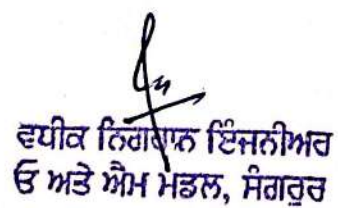 ਵਧੀਕ ਨਿਗਰਾਨ ਇੰਜਨੀਅਰ
ਓ ਅਤੇ ਐਮ ਮੰਡਲ, ਸੰਗਰੂਰ